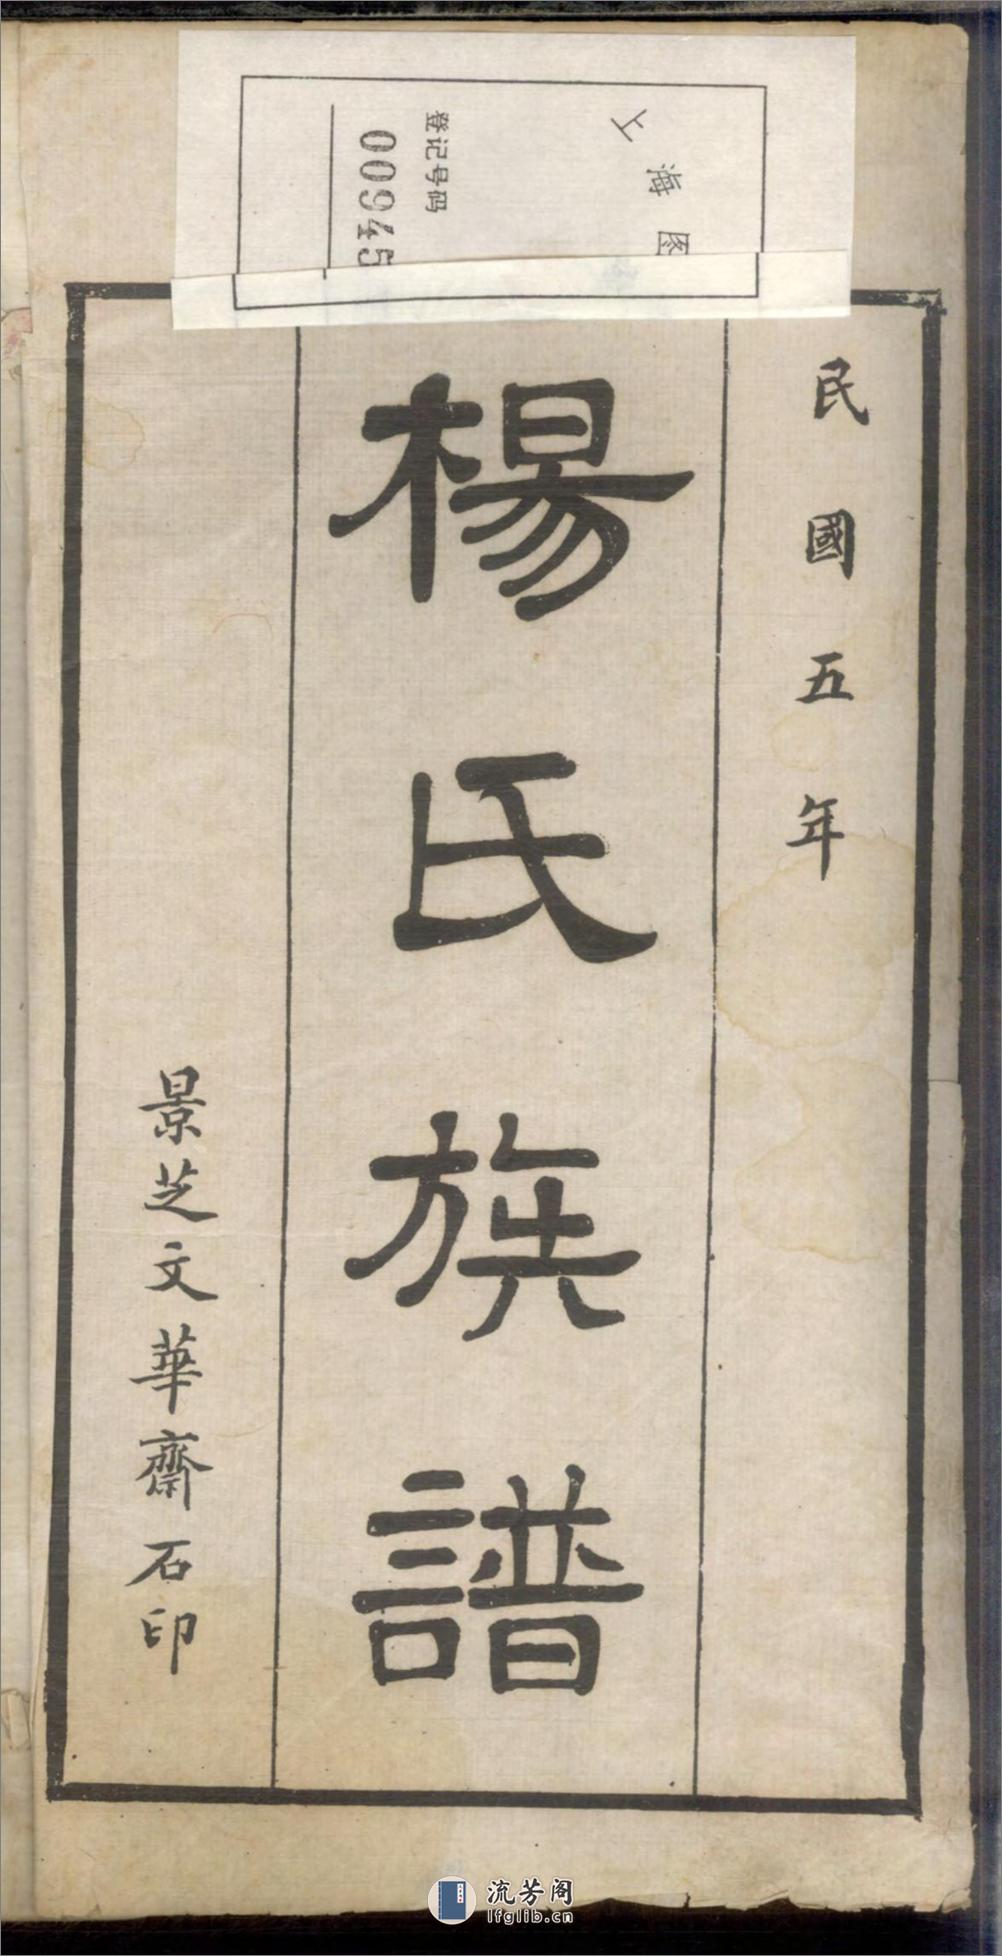 上海图
登记号码
00945
民國五年
楊氏族譜
景芝文華齋石印
流芳阁
lfglib.cn